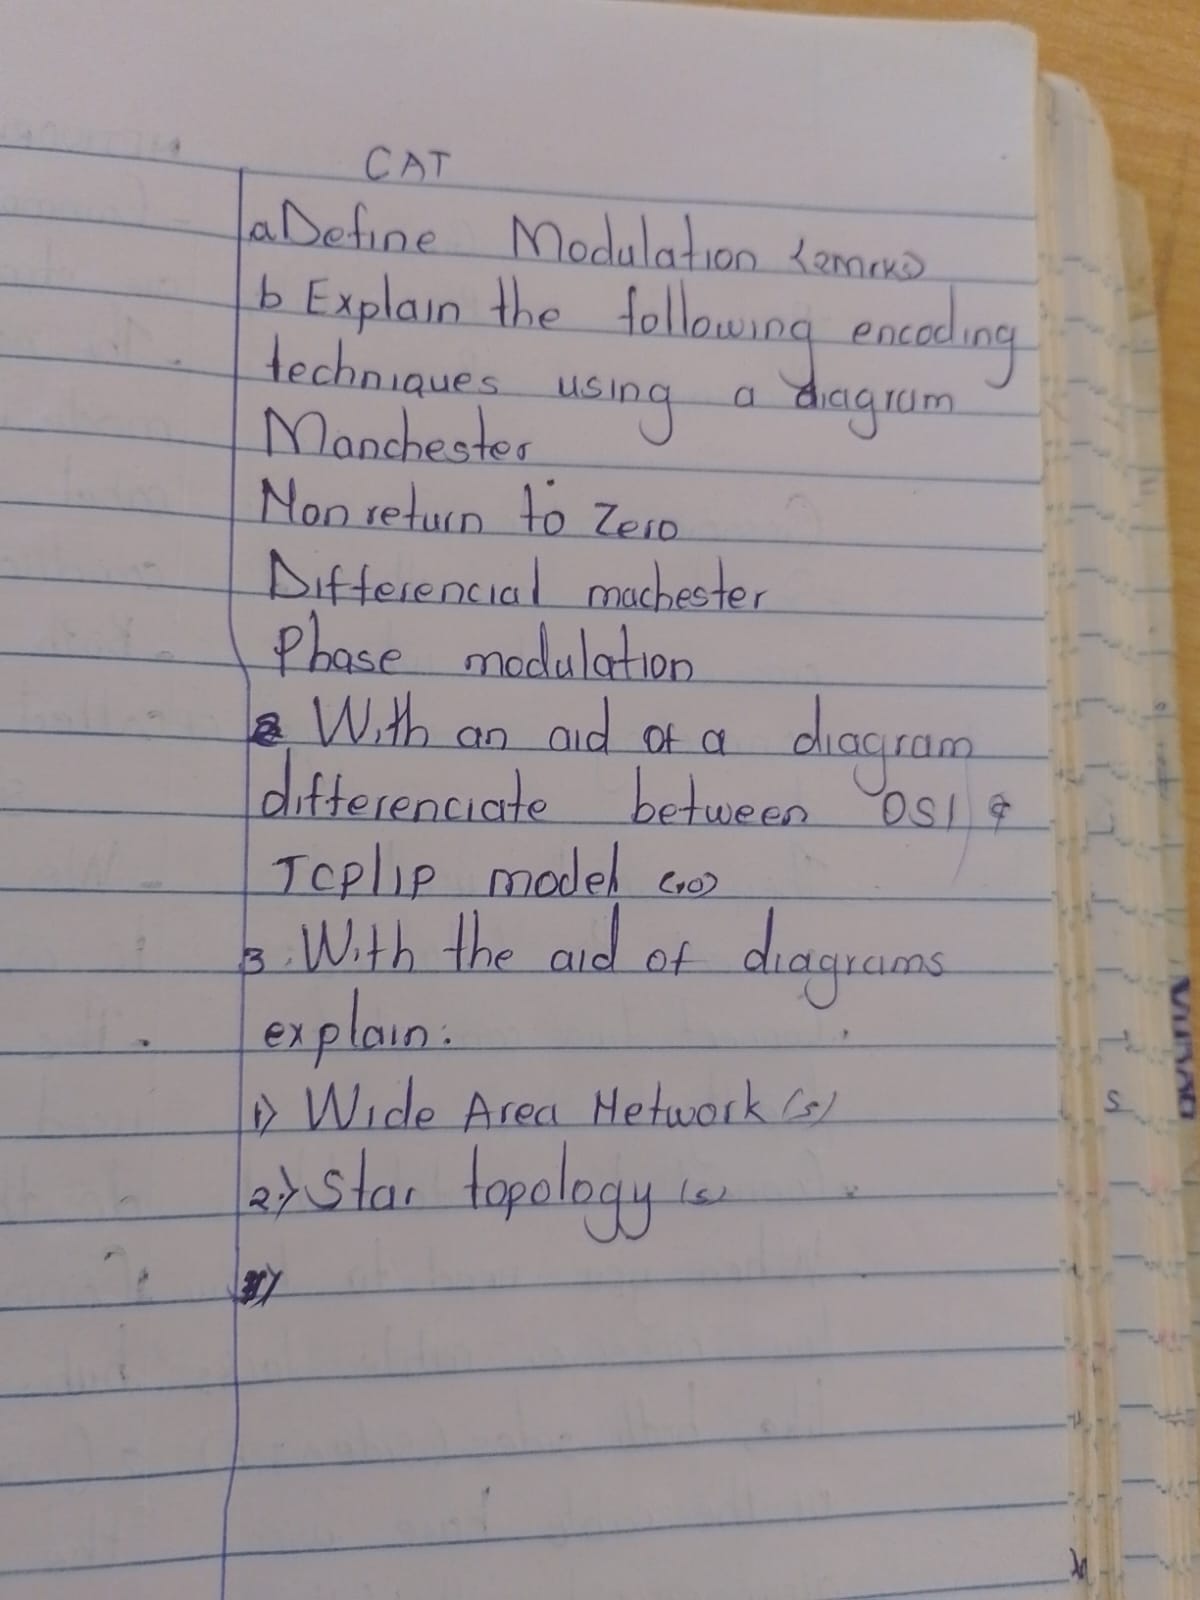 CAT
a Define Modulation {2mrks}
b Explain the following encoding
techniques using a diagram
Manchester
Non return to Zero
Differencial machester
Phase modulation
2 With an aid of a diagram
differenciate between OSI &
TCP/IP model (10)
3. With the aid of diagrams
explain:
1) Wide Area Network (5)
2) Star topology (5)